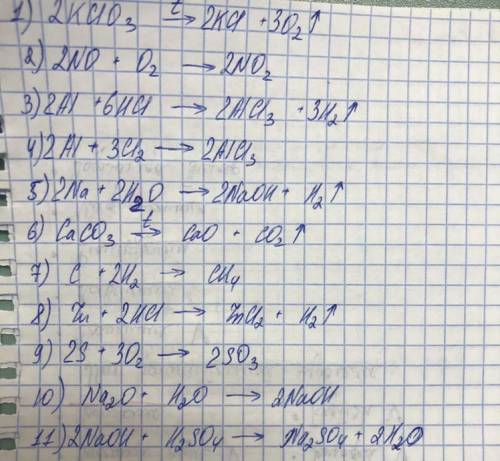 1) 2KClO₃ —t→ 2KCl + 3O₂↑
2) 2NO + O₂ → 2NO₂
3) 2Al + 6HCl → 2AlCl₃ + 3H₂↑
4) 2Al + 3Cl₂ → 2AlCl₃
5) 2Na + 2H₂O → 2NaOH + H₂↑
6) CaCO₃ —t→ CaO + CO₂↑
7) C + 2H₂ → CH₄
8) Zn + 2HCl → ZnCl₂ + H₂↑
9) 2S + 3O₂ → 2SO₃
10) Na₂O + H₂O → 2NaOH
11) 2NaOH + H₂SO₄ → Na₂SO₄ + 2H₂O